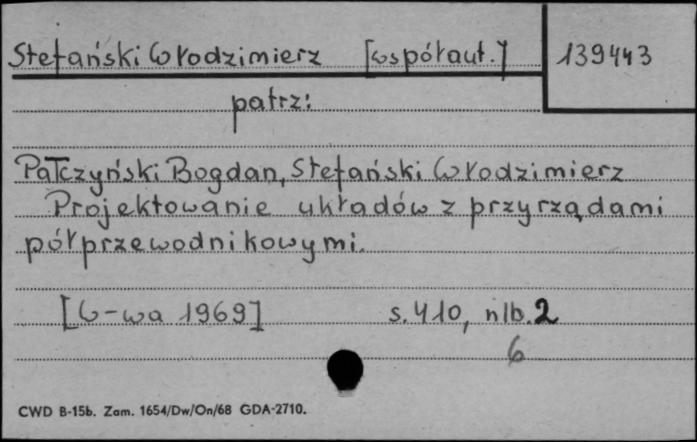 Stefański Włodzimierz [współaut.] 139443
patrz:
Pałczyński Bogdan, Stefański Włodzimierz
Projektowanie układów z przyrządami
półprzewodnikowymi.
[W-wa 1969] s. 410, nlb. 2
6
CWD B-15b. Zam. 1654/Dw/On/68 GDA-2710.